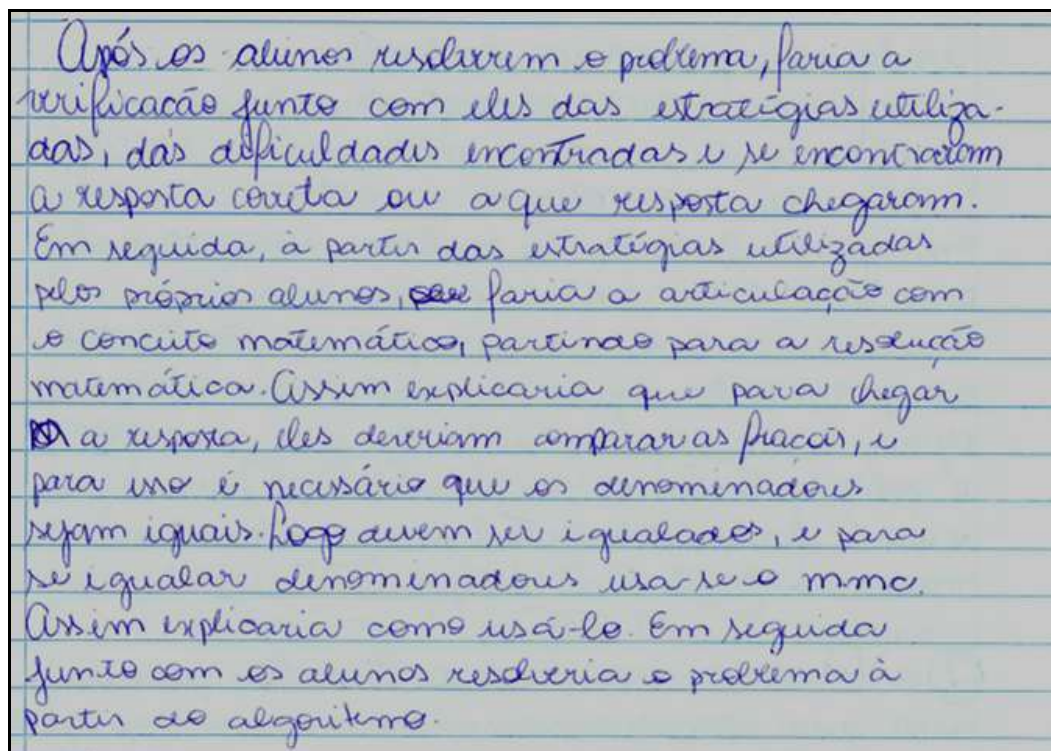 Após os alunos resolverem o problema, faria a
verificação junto com eles das estratégias utiliza-
das, das dificuldades encontradas e se encontraram
a resposta correta ou a que resposta chegaram.
Em seguida, à partir das estratégias utilizadas
pelos próprios alunos, faria a articulação com
o conceito matemático, partindo para a resolução
matemática. Assim explicaria que para chegar
a resposta, eles deveriam comparar as frações, e
para isso é necessário que os denominadores
sejam iguais. Logo devem ser igualados, e para
se igualar denominadores usa-se o mmc.
Assim explicaria como usá-lo. Em seguida
junto com os alunos resolveria o problema à
partir do algoritmo.